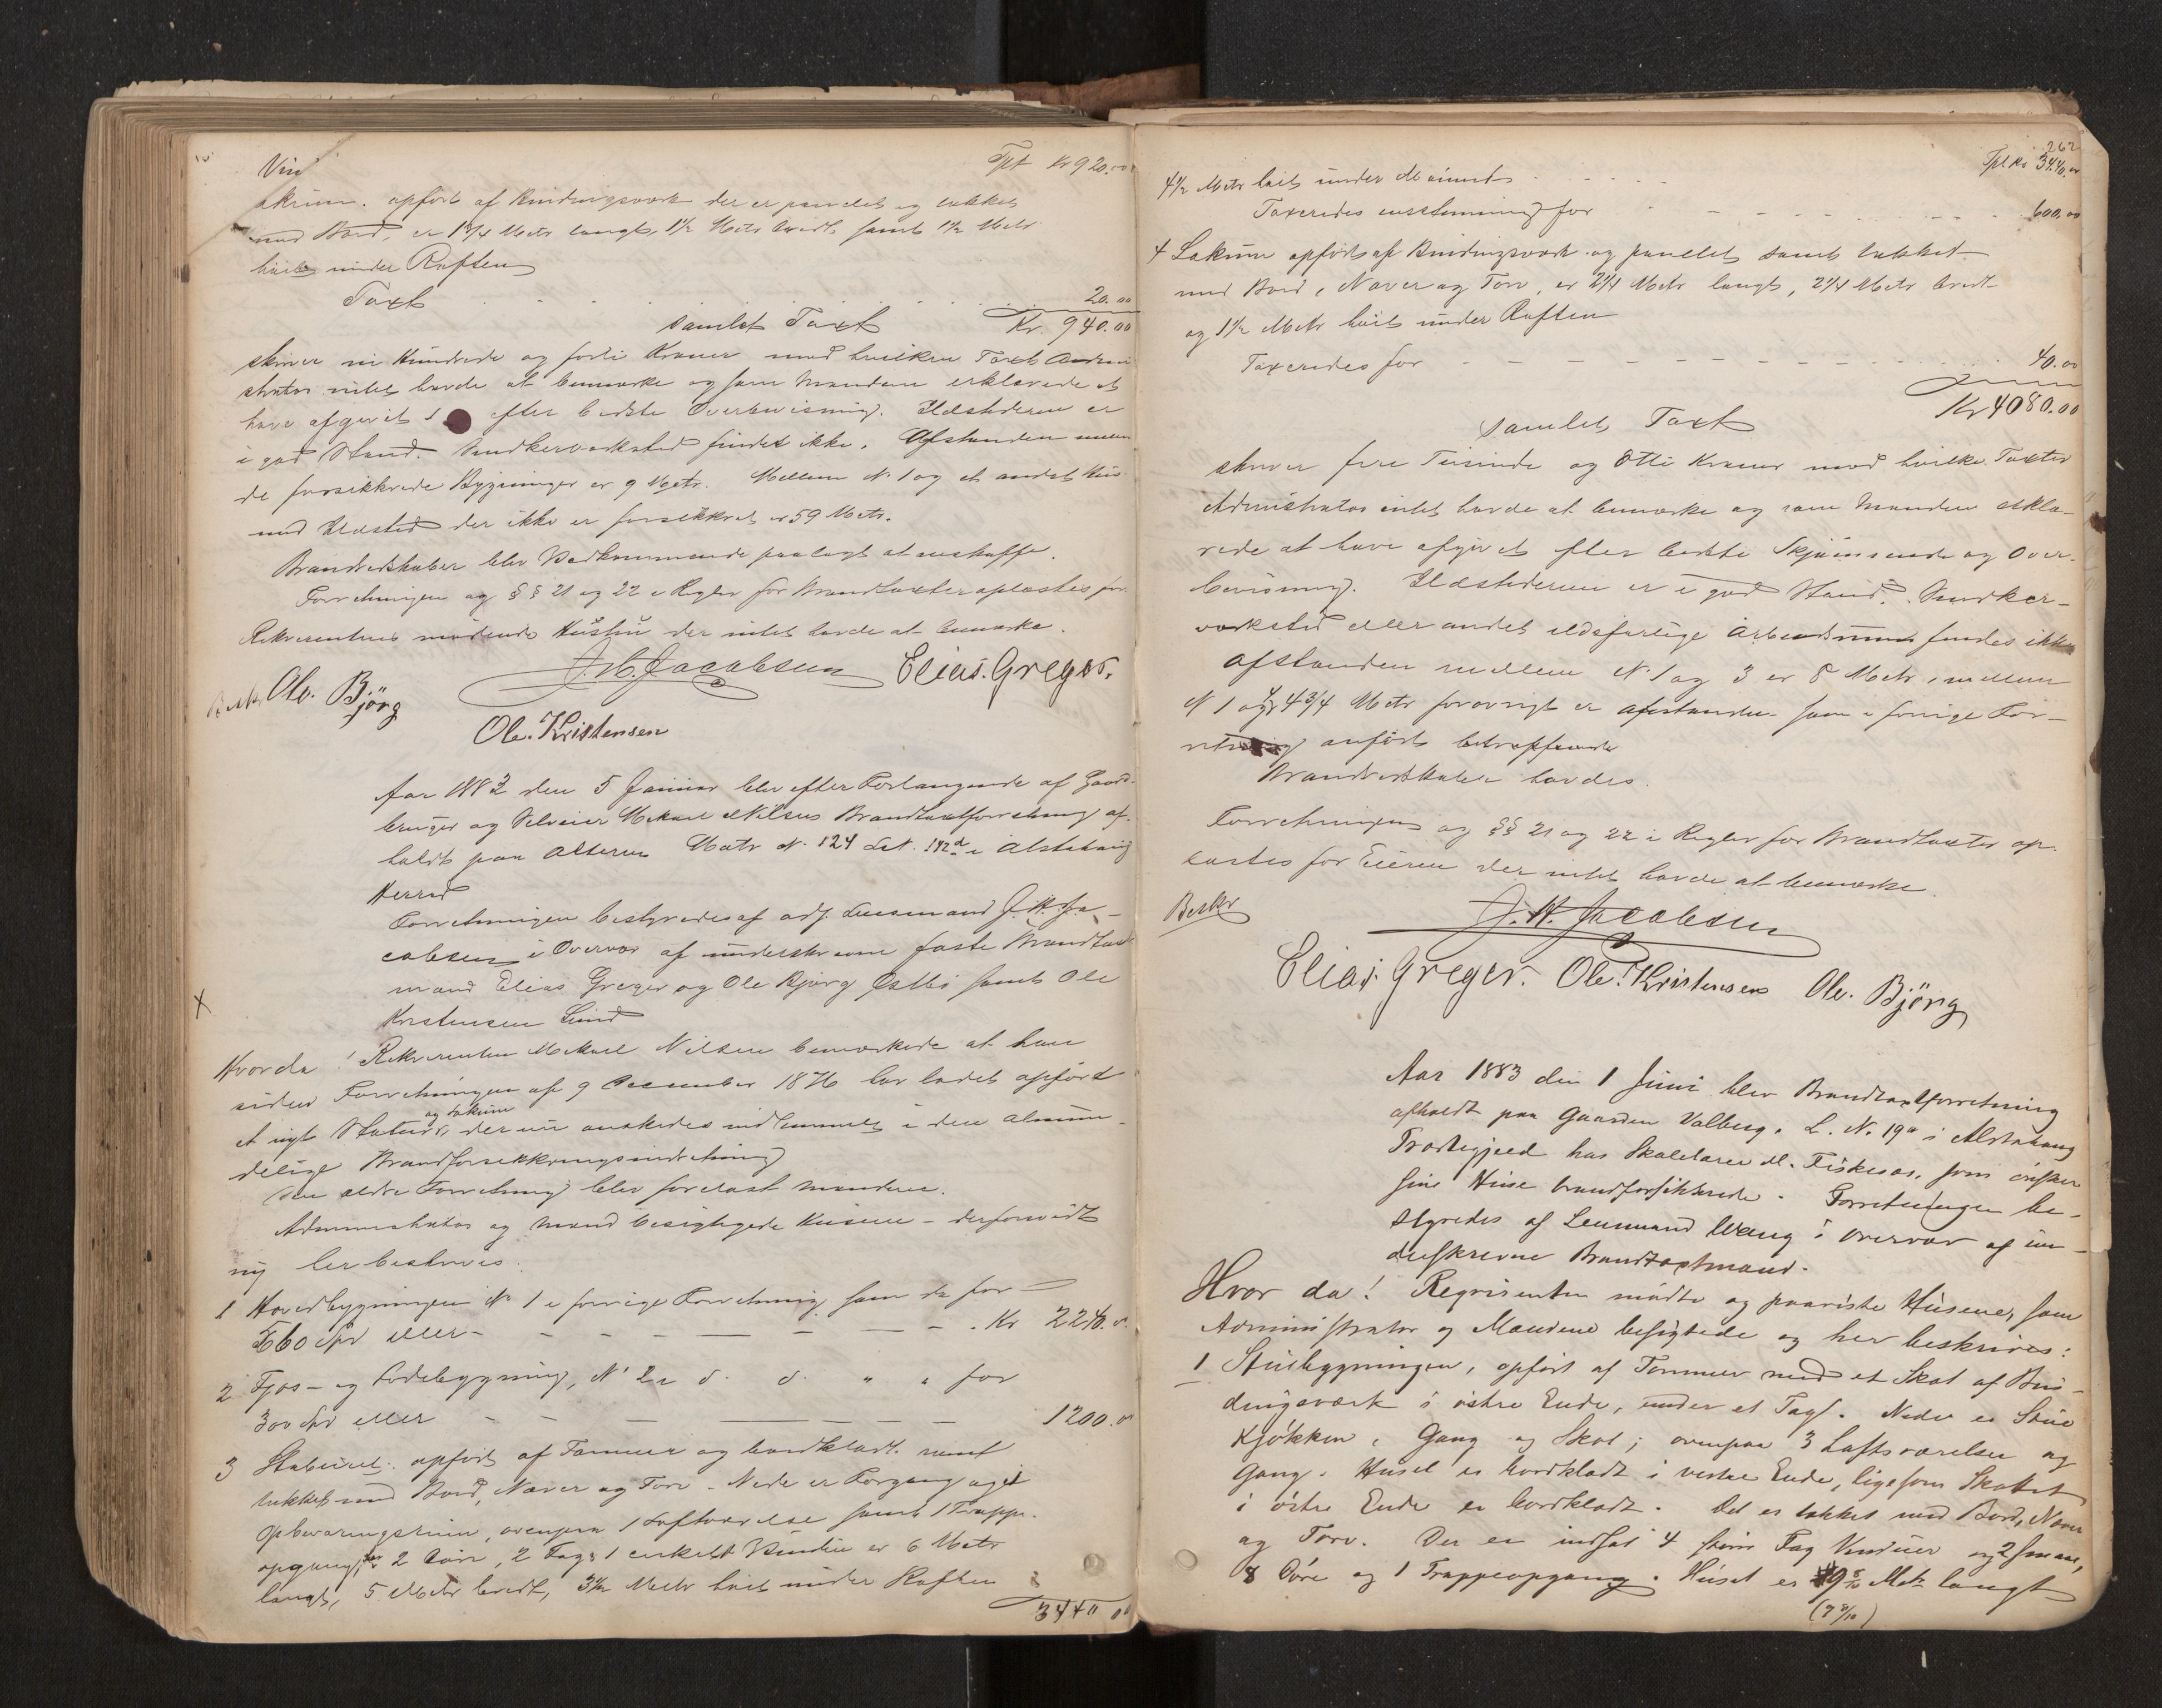 Tpt Kr 920.00
skrøm. opført af Bindingsværk der er panelet og tækket
med Bord, er 1 3/4 Metr langt, 1 1/2 Metr bredt samt 1 1/2 Metr
høit under Raften
Taxt 20.00
samlet Taxt Kr. 940.00
skriver ni Hundrede og forti Kroner mod hvilken Taxt Admini
strator intet havde at bemærke og som Mændene erklærede at
have afgivet efter bedste Overbevisning. Ildstederne er
i god Stand. Snedkerværksted findes ikke. Afstanden mellem
de forsikkrede Bygninger er 9 Metr. Mellem N. 1 og et andet Hus
med Ildsted der ikke er forsikkret er 59 Metr.
Brandredskaber blev Vedkommende paalagt at anskaffe.
Forretningen og §§ 21 og 22 i Regler for Brandtaxter oplæstes for
Rekvirentens mødende Hustru der intet havde at bemærke.
J. H. Jacobsen Elias. Greger.
Beskr Ole. Björg
Ole. Kristensen
Aar 1883 den 5 Januar blev efter Forlangende af Gaard-
bruger og Selveier Mekael Nilsens Brandtaxtforretning af-
holdt paa Alteren Matr N. 124 Lit. 142 d i Alstahaug
Herred
Forretningen bestyredes af adj. Lensmand J. H. Ja-
cobsen i Overvær af underskrevne faste Brandtaxt
mænd Elias Greger og Ole Bjørg Østbi samt Ole
Kristensen Lund
X
Hvor da! Rekvirenten Mekael Nilsen bemærkede at han
siden Forretningen af 9 December 1876 har ladet opført
et nyt Stabur, og Lokum der nu ønskedes indlemmet i den almin-
delige Brandforsikkringsindretning
Den ældre Forretning blev forelæst Mændene.
Administrator og Mænd besigtigede Husene - derforuidt
ny her beskrives.
1 Hovedbygningen N 1 i forrige Forretning som da for
560 Spd eller - - - - - - Kr 2240.00
2 Fjøs- og Ladebygning, N 2 i d. d. " " for
300 Spd eller - - - - - 1200.00
3 Staburet. opført af Tømmer og bordklædt samt
tækket med Bord, Næver og Torv. Nede er Forgang og et
Opbevaringsrum, ovenpaa 1 Loftværelse samt 1 Trappe-
opgang, har 2 Døre, 2 Fag & 1 enkelt Vindue er 6 Metr
langt, 5 Metr bredt, 3 1/2 Metr høit under Raften
3440 00
262
Tpt Kr 3440.00
4 1/2 Metr høit under Mønnet
Taxeredes enstemmig for 600.00
4 Lokum opført af Bindingsværk og panelet samt tækket
med Bord, Næver og Torv, er 2 1/4 Metr langt, 2 1/4 Metr bredt
og 1 1/2 Metr høit under Raften
Taxeredes for - - - - - 40.00
samlet Taxt Kr 4080.00
skriver fire Tusinde og Otti Kroner mod hvilke Taxter
Administrator intet havde at bemærke og som Mændene erklæ-
rede at have afgivet efter bedste Skjønnende og Over-
bevisning. Ildstederne er i god Stand. Snedker-
værksted eller andet ildsfarlige Arbeidsrum findes ikke
Afstanden mellem N. 1 og 3 er 8 Metr, mellem
N 1 og 4 4 3/4 Metr forøvrigt er Afstanden som i forrige For-
retning anført betræffende
Brandredskaber havdes.
Forretningen og §§ 21 og 22 i Regler for Brandtaxter op-
læstes for Eieren der intet havde at bemærke
Beskr
J. H. Jacobsen
Elias. Greger. Ole. Kristensen Ole. Björg
Aar 1883 den 1 Juni blev Brandtaxtforretning
afholdt paa Gaarden Valberg. L. N. 19 a i Alstahaug
Præstegjeld hos Skolelærer M. Fiskesas, som ønsker
sine Huse brandforsikkrede. Forretningen be-
styredes af Lensmand Wang i Overvær af un-
derskrevne Brandtaxtmænd.
Hvor da! Reqvirenten mødte og paaviste Husene, som
Administrator og Mændene besigtede og her beskrives:
1 Stuebygningen, opført af Tømmer med et Skot af Bin-
dingsværk i østre Ende, under et Tag. Nede er Stue
Kjøkken, Gang og Skot; ovenpaa 3 Loftsværelser og
Gang. Huset er bordklædt i vestre Ende, ligesom Skottet
i østre Ende er bordklædt. Det er tækket med Bord, Næver
og Torv. Der er indsat 4 store Fag Vinduer og 2 smaa,
8 Døre og 1 Trappeopgang. Huset er 9 8/10 Metr langt
(9 8/10)